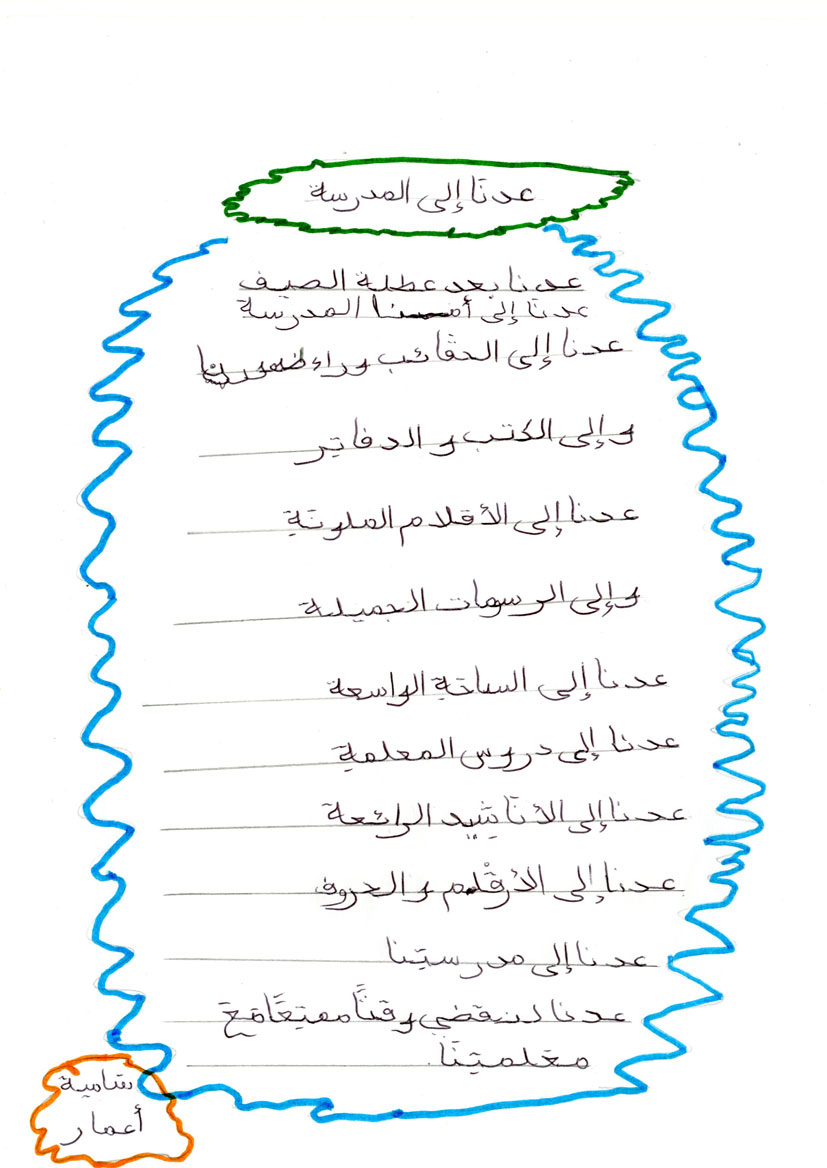 عدنا إلى المدرسة
عدنا بعد عطلة الصيف
عدنا إلى أمنا المدرسة
عدنا إلى الحقائب وراء ظهورنا
وإلى الكتب و الدفاتير
عدنا إلى الأقلام الملونة
وإلى الرسومات الجميلة
عدنا إلى الساحة الواسعة
عدنا إلى دروس المعلمة
عدنا إلى الأناشيد الرائعة
عدنا إلى الأرقام و الحروف
عدنا إلى مدرستنا
عدنا لنقضي وقتًا ممتعًا مع
معلمتنا.
شامية
أعمار